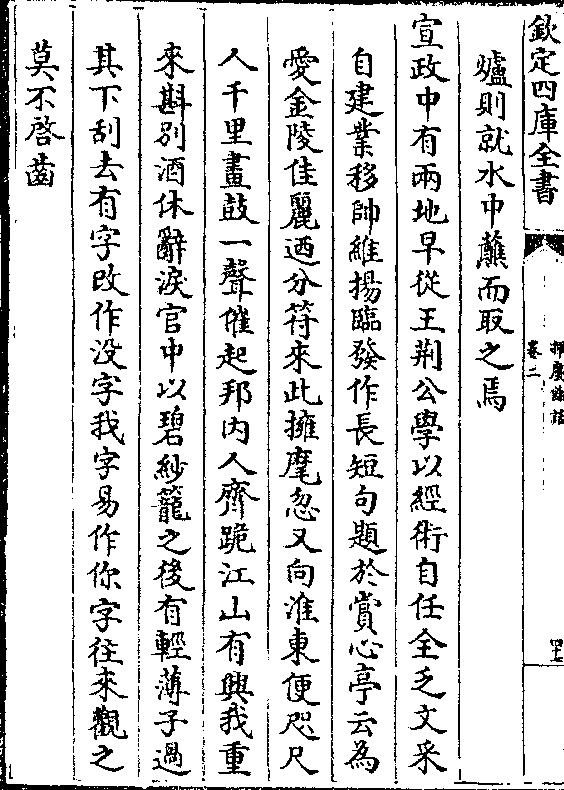 欽定四庫全書
揮麈餘話
卷二
爐則就水中蘸而取之焉
宣政中有兩地早從王荆公學以經術自任全乏文采
自建業移帥維揚臨發作長短句題於賞心亭云為
愛金陵佳麗迺分符來此擁麾忽又向淮東便咫尺
人千里畫鼓一聲催起邦内人齊跪江山有興我重
來斟别酒休辭淚官中以碧紗籠之後有輕薄子過
其下刮去有字改作没字我字易作你字往來觀之
莫不啓齒